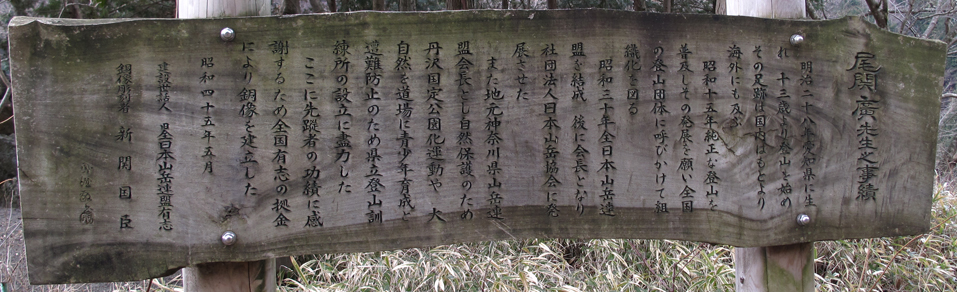 尾関廣先生之事績
明治二十八年愛知県に生
れ 十三歳より登山を始め
その足跡は国内はもとより
海外にも及ぶ
昭和十五年純正な登山を
普及しその発展を願い全国
の登山団体に呼びかけて組
織化を図る
昭和三十年全日本山岳連
盟を結成 後に会長となり
社団法人日本山岳協会に発
展させた
また地元神奈川県山岳連
盟会長とし自然保護のため
丹沢国定公園化運動や 大
自然を道場に青少年育成と
遭難防止のため県立登山訓
練所の設立に尽力した
ここに先蹤者の功績に感
謝するため全国有志の拠金
により銅像を建立した
昭和四十五年五月
建設世話人 全日本山岳連盟有志
銅像彫刻 新関国臣